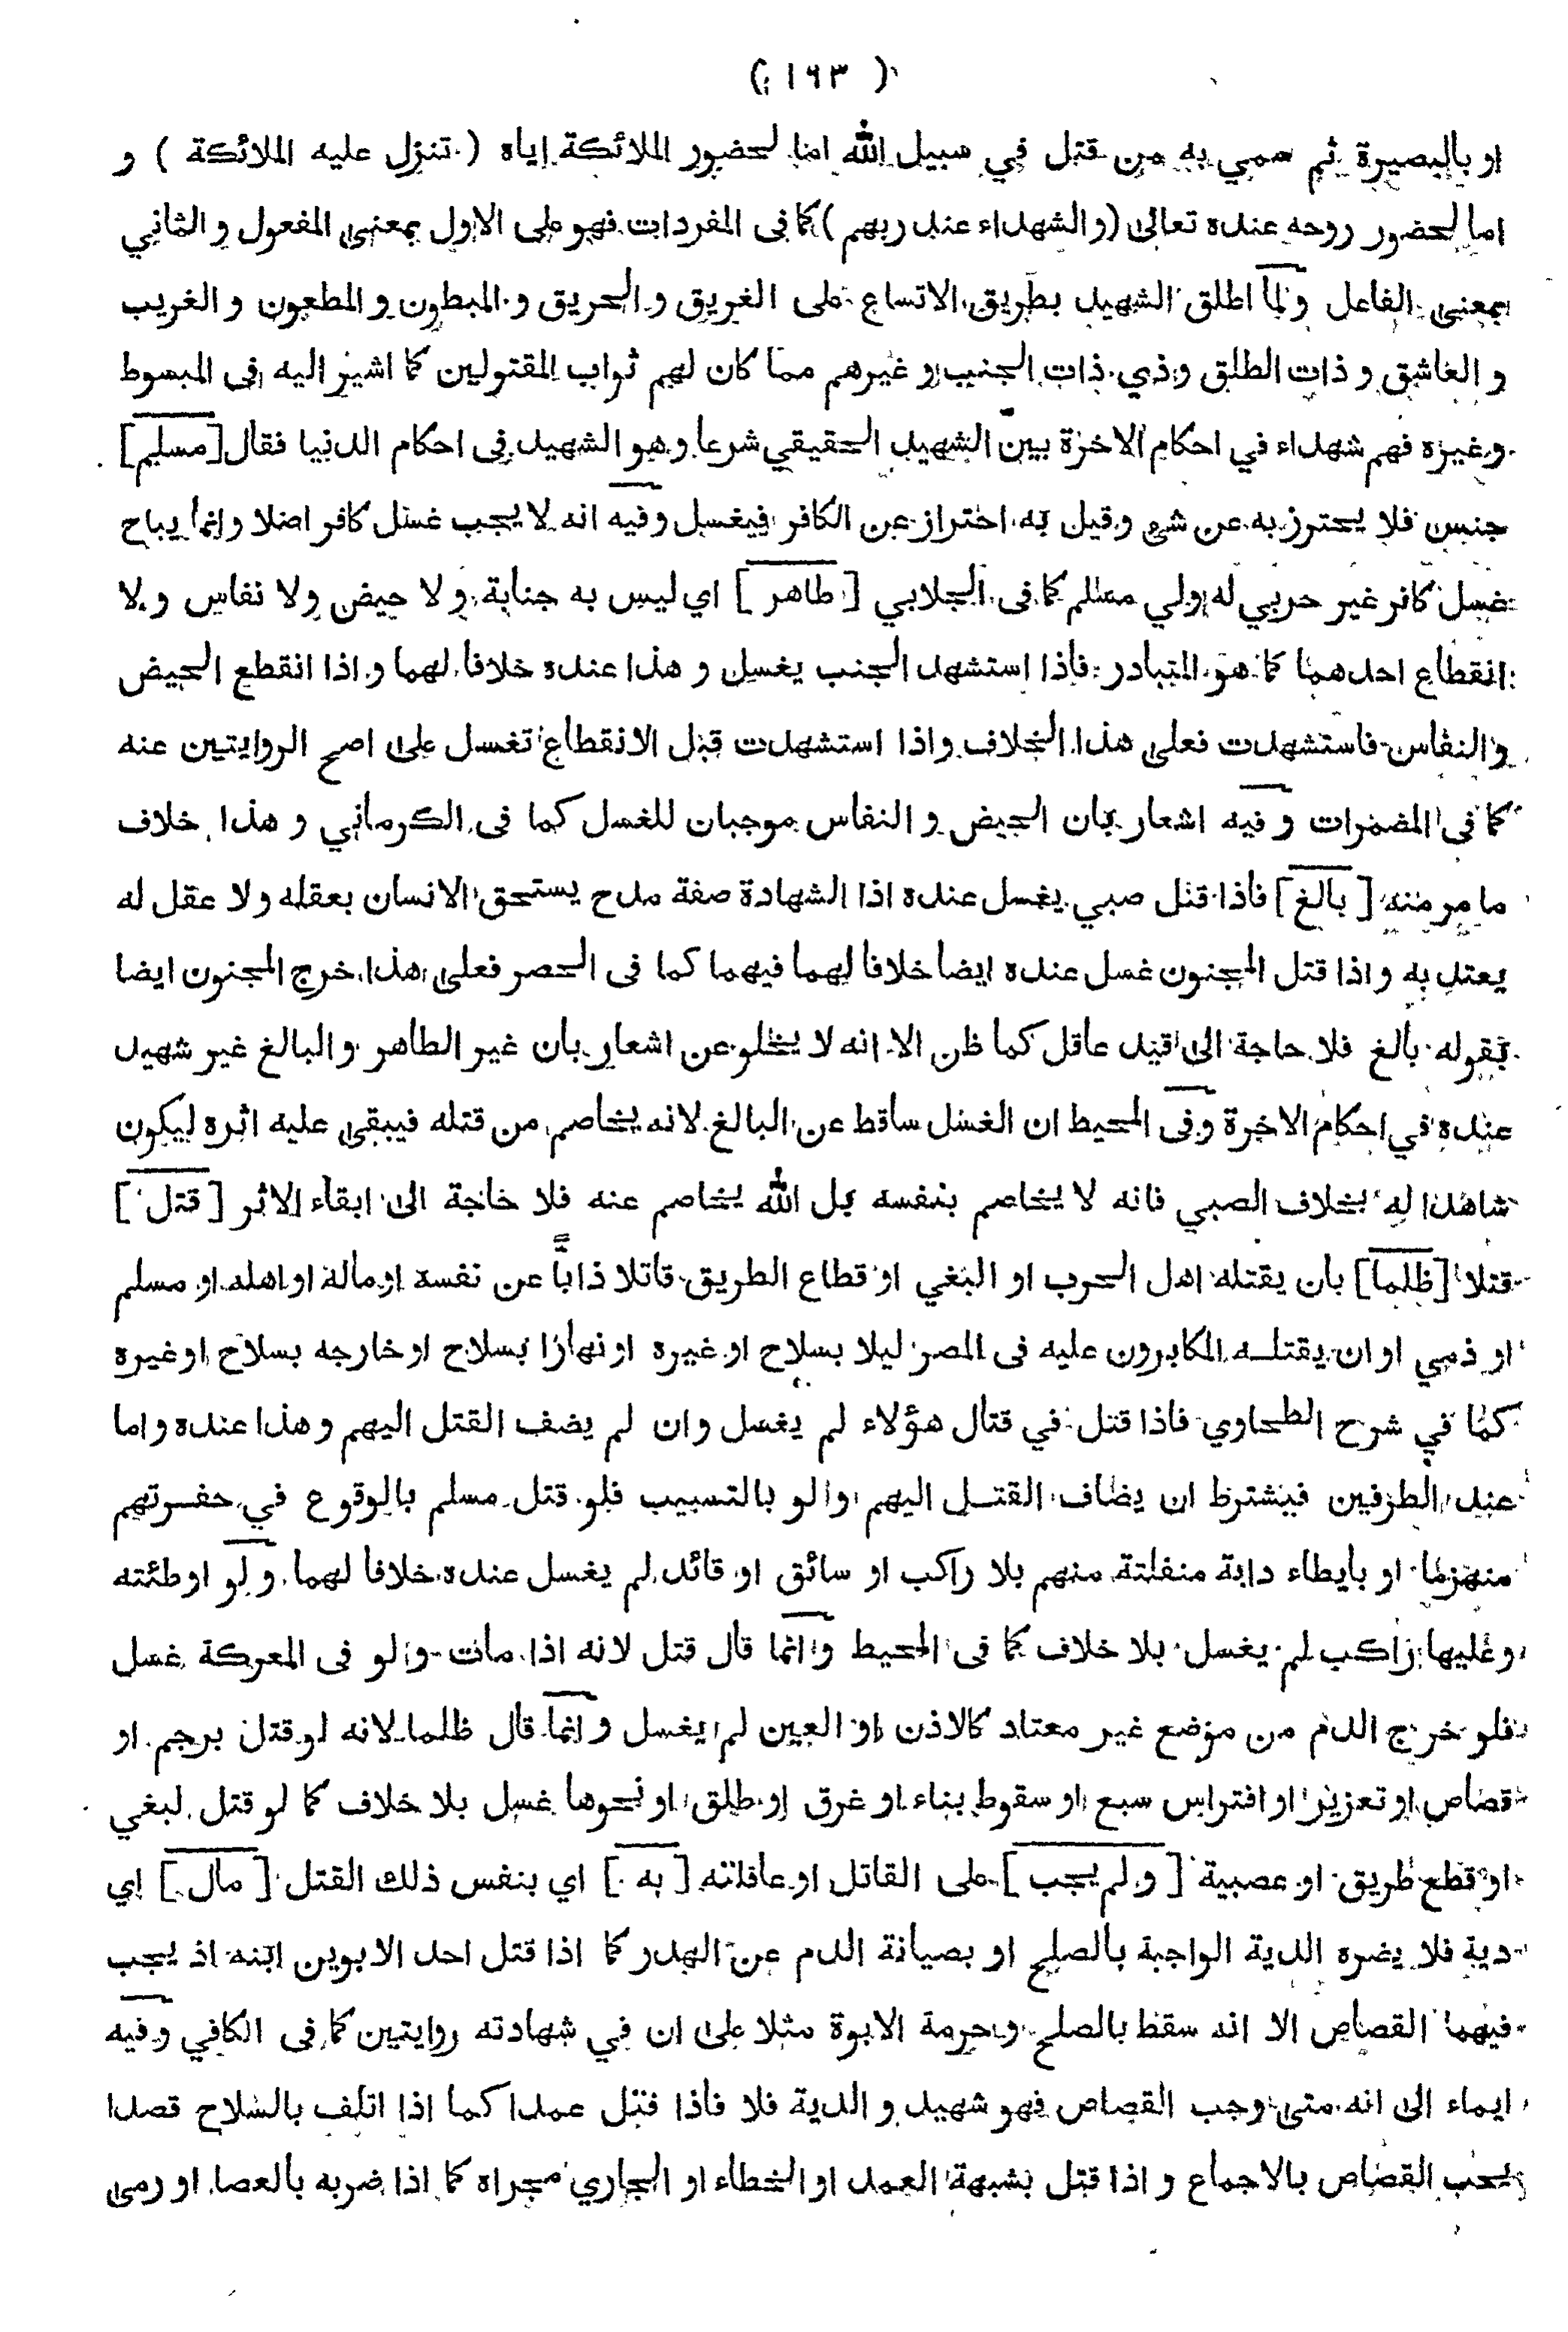 ( ١٦٣ )
او بالبصيرة ثم سمي به من قتل في سبيل الله اما لحضور الملائكة اياه ( تنزل عليه الملائكة ) و
اما لحضور روحه عنده تعالى (والشهداء عند ربهم) كما فى المفردات فهو على الاول بمعنى المفعول و الثاني
بمعنى الفاعل و لما اطلق الشهيد بطريق الاتساع على الغريق و الحريق و المبطون و المطعون و الغريب
و العاشق و ذات الطلق و ذي ذات الجنب و غيرهم مما كان لهم ثواب المقتولين كما اشير اليه فى المبسوط
و غيره فهم شهداء في احكام الاخرة بين الشهيد الحقيقي شرعا و هو الشهيد فى احكام الدنيا فقال [مسلم]
جنس فلا يحترز به عن شئ و قيل به احتراز عن الكافر فيغسل و فيه انه لا يجب غسل كافر اصلا و انما يباح
غسل كافر غير حربي له ولي مسلم كما فى الجلابي [ طاهر ] اي ليس به جنابة و لا حيض ولا نفاس و لا
انقطاع احدهما كما هو المتبادر فاذا استشهد الجنب يغسل و هذا عنده خلافا لهما و اذا انقطع الحيض
و النفاس فاستشهدت فعلى هذا الخلاف و اذا استشهدت قبل الانقطاع تغسل على اصح الروايتين عنه
كما فى المضمرات و فيه اشعار بان الحيض و النفاس موجبان للغسل كما فى الكرماني و هذا خلاف
ما مر منه [ بالغ ] فاذا قتل صبي يغسل عنده اذا الشهادة صفة مدح يستحق الانسان بعقله و لا عقل له
يعتد به و اذا قتل المجنون غسل عنده ايضا خلافا لهما فيهما كما فى الحصر فعلى هذا خرج المجنون ايضا
بقوله بالغ فلا حاجة الى قيد عاقل كما ظن الا انه لا يخلو عن اشعار بان غير الطاهر و البالغ غير شهيد
عنده في احكام الاخرة و فى المحيط ان الغسل ساقط عن البالغ لانه يخاصم من قتله فيبقى عليه اثره ليكون
شاهدا له بخلاف الصبي فانه لا يخاصم بنفسه بل الله يخاصم عنه فلا حاجة الى ابقاء الاثر [ قتل ]
قتلا [ظلما] بان يقتله اهل الحرب او البغي او قطاع الطريق قاتلا ذابا عن نفسه او ماله او اهله او مسلم
او ذمي او ان يقتلـه المكابرون عليه فى المصر ليلا بسلاح او غيره او نهارا بسلاح او خارجه بسلاح او غيره
كما في شرح الطحاوي فاذا قتل في قتال هؤلاء لم يغسل و ان لم يضف القتل اليهم و هذا عنده و اما
عند الطرفين فيشترط ان يضاف القتـل اليهم و لو بالتسبيب فلو قتل مسلم بالوقوع في حفـرتهم
منهزما او بايطاء دابة منفلتة منهم بلا راكب او سائق او قائد لم يغسل عنده خلافا لهما و لو اوطئته
و عليها راكب لم يغسل بلا خلاف كما فى المحيط و انما قال قتل لانه اذا مات و لو فى المعركة غسل
فلو خرج الدم من موضع غير معتاد كالاذن او العين لم يغسل و انما قال ظلما لانه لو قتل برجم او
قصاص او تعزير او افتراس سبع او سقوط بناء او غرق او طلق او نحوها غسل بلا خلاف كما لو قتل لبغي
او قطع طريق او عصبية [ و لم يجب ] على القاتل او عاقلته [ به ] اي بنفس ذلك القتل [ مال ] اي
دية فلا يضره الدية الواجبة بالصلح او بصيانة الدم عن الهدر كما اذا قتل احد الابوين ابنه اذ يجب
فيهما القصاص الا انه سقط بالصلح و حرمة الابوة مثلا على ان في شهادته روايتين كما فى الكافي و فيه
ايماء الى انه متى وجب القصاص فهو شهيد و الدية فلا فاذا قتل عمدا كما اذا اتلف بالسلاح قصدا
يجب القصاص بالاجماع و اذا قتل بشبهة العمد او الخطاء او الجاري مجراه كما اذا ضربه بالعصا او رمى